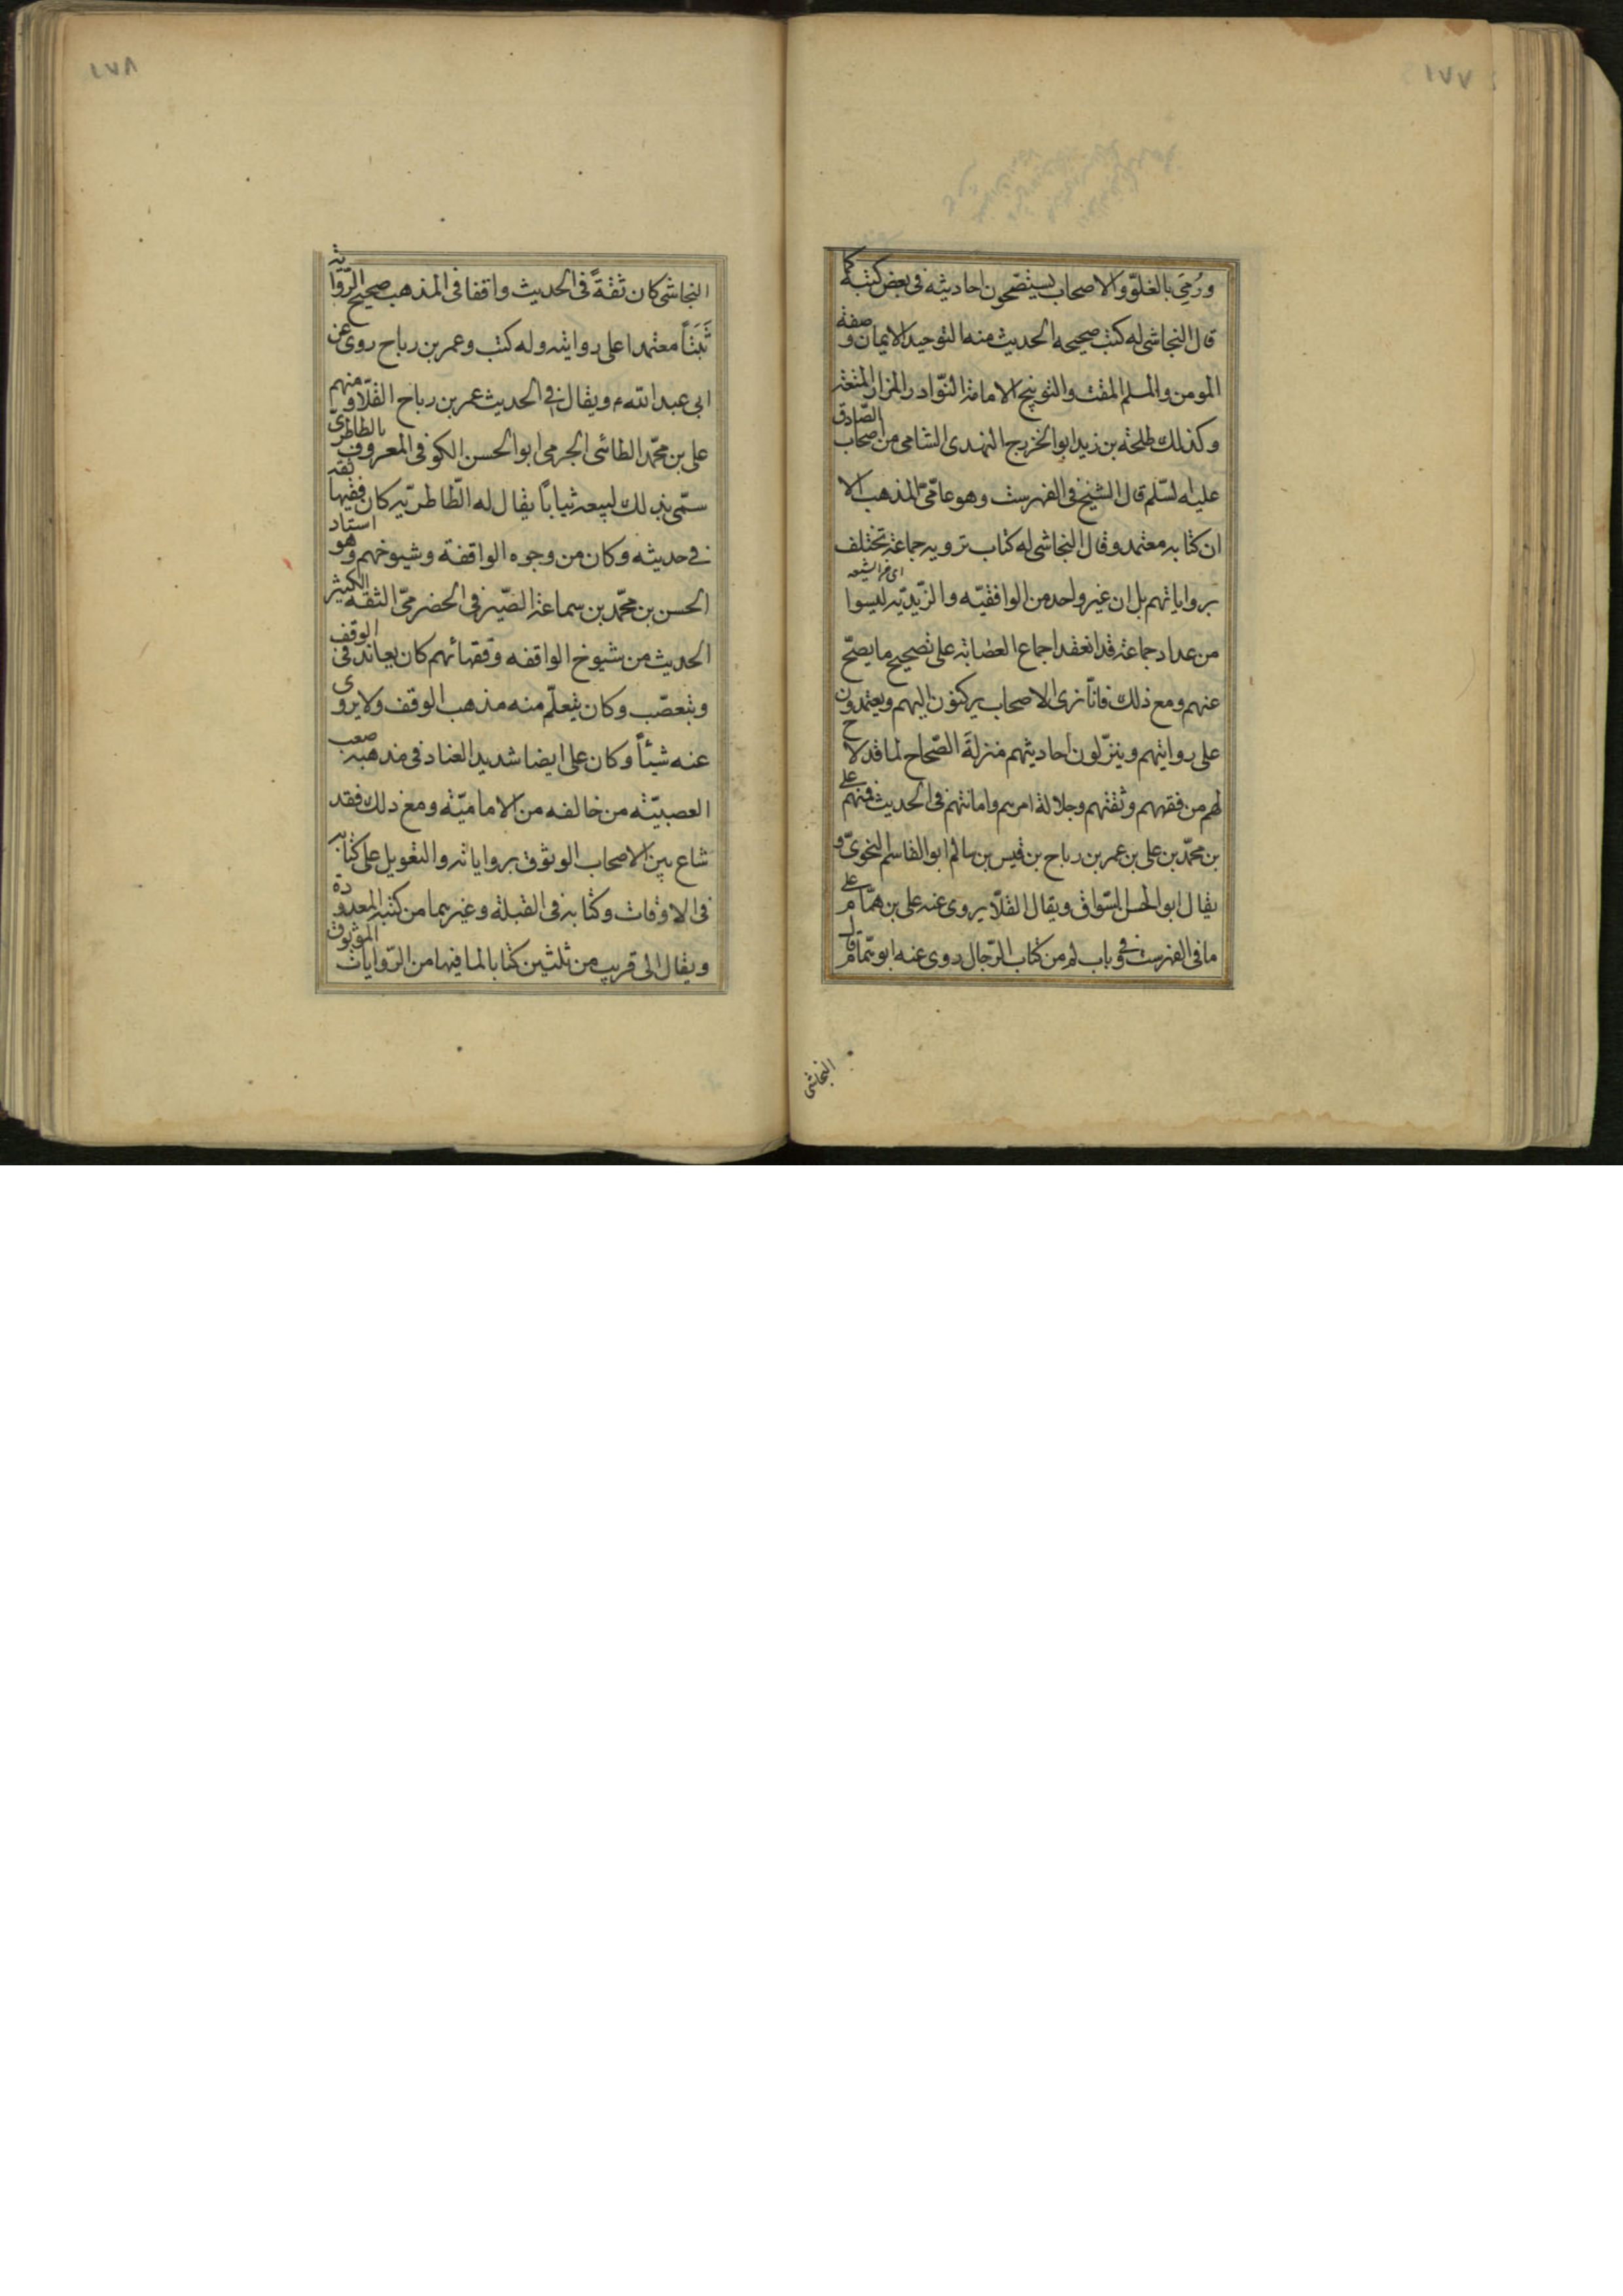 ١٧٧
ورُمِيَ بالغلوّ والاصحاب يستصّحون احاديثه فى بعض كتبه كما
قال النجاشى له كتب صحيحه الحديث منها التوحيد الايمان و صفة
المومن والمسلم المقت والتوبيخ الامامة النّوادر المزار المتعة
وكذلك طلحة بن زيد ابو الخزرج النهدى الشامى من اصحاب الصّادق
عليه لسّلم قال الشيخ فى الفهرست وهو عامّىّ المذهب الا
ان كتابه معتمد وقال النجاشى له كتاب ترويه جماعة تختلف
برواياتهم بل ان غير واحد من الواقفيّه والزّيديّه ليسوا
من عداد جماعة قد انعقد اجماع العصابة على تصحيح ما يصحّ
عنهم ومع ذلك فانّا نرى الاصحاب يركنون اليهم ويعتمدون
على روايتهم وينزّلون احاديثهم منزلة الصّحاح لما قد لاح
لهم من فقههم وثقتهم وجلالة امرهم وامانتهم فى الحديث فمنهم على
بن محمّد بن على بن عمر بن رباح بن قيس بن سالم ابو القاسم النحوىّ و
يقال ابو الحسن السّواق ويقال القلّا يروى عنه على بن همّام على
ما فى الفهرست وفى باب لم من كتاب الرّجال روى عنه ابو همّام قال
النجاشى
١٧٨
النجاشى كان ثقةً فى الحديث واقفا فى المذهب صحيح الرّواية
ثَبَتاً معتمدا على روايته وله كتب وعمر بن رباح روى عن
ابى عبد الله م ويقال فى الحديث عمر بن رباح القلّا ومنهم
على بن محمّد الطائى الجرمى ابو الحسن الكوفى المعروف بالطاطرىّ
سمّى بذلك لبيعه ثيابًا يقال له الطّاطريّه كان فقيها ثقه
فى حديثه وكان من وجوه الواقفة وشيوخهم وهو استاد
الحسن بن محمّد بن سماعة الصّيرفى الحضرمىّ الثقه الكثير
الحديث من شيوخ الواقفه وفقهائهم كان يعاند فى الوقف
ويتعصّب وكان يتعلّم منه مذهب الوقف ولا يروى
عنه شيئاً وكان على ايضا شديد العناد فى مذهبه صعب
العصبيّة من خالفه من الاماميّة ومع ذلك فقد
شاع بين الاصحاب الوثوق برواياته والتعويل على كتابه
فى الاوقات وكتابه فى القبلة وغيرهما من كتبه المعدودة
ويقال الى قريب من ثلثين كتابا لما فيها من الرّوايات الموثوق